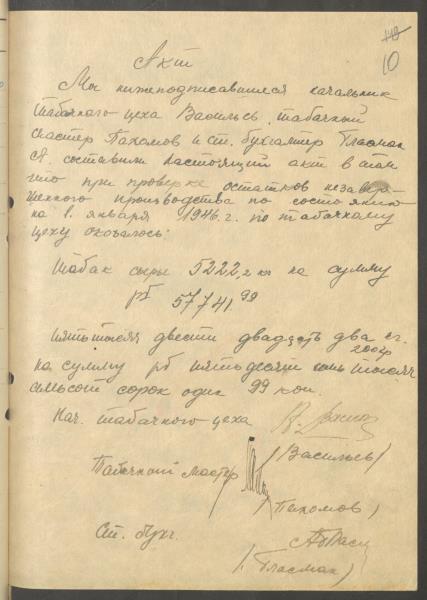 110
10
Акт
Мы нижеподписавшиеся начальник
табачного цеха Васильев, табачный
мастер Пахомов и ст. бухгалтер Гласман
А. составили настоящий акт в том
что при проверке остатков незавер-
шенного производства по состоянию
на 1. января 1946. г. по табачному
цеху оказалось:
Табак сырье 5222,2 кг на сумму
рб 57741.99
пять тысяч двести двадцать два кг. 200 гр
на сумму рб пятьдесят семь тысяч
семьсот сорок один 99 коп.
Нач. табачного цеха
(Васильев)
Табачный мастер
(Пахомов)
Ст. бухг.
(Гласман)